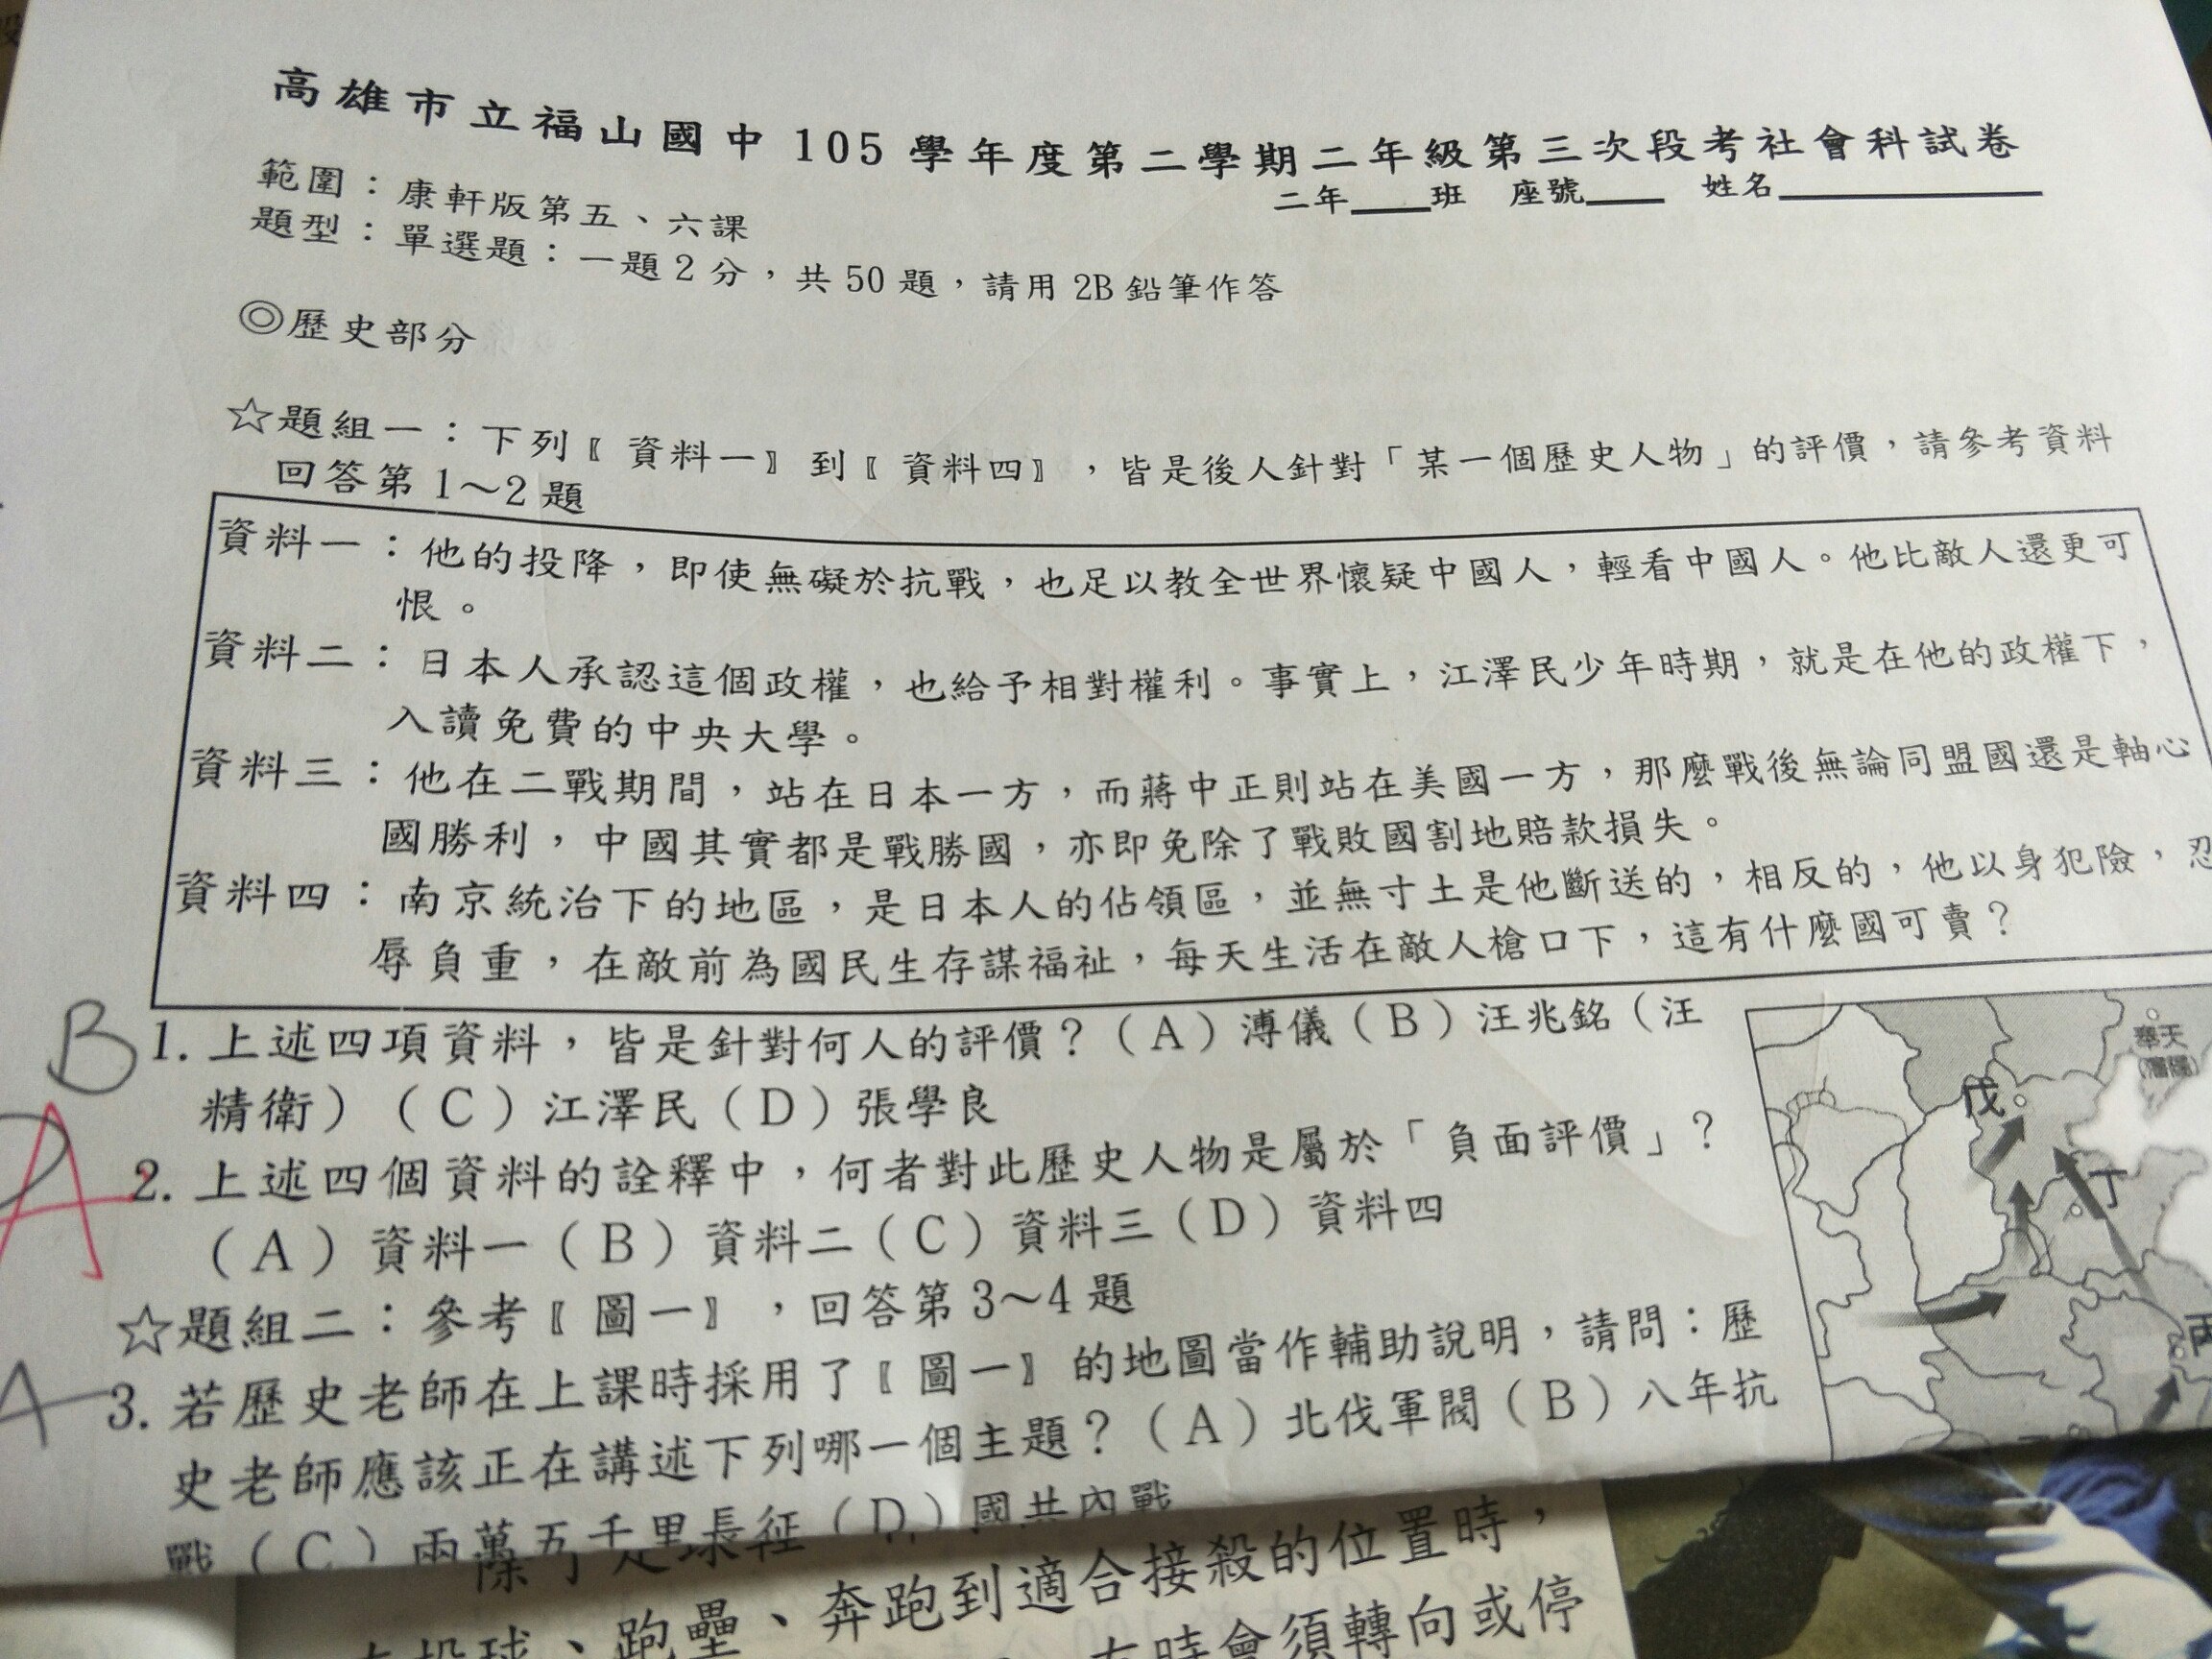 高雄市立福山國中 105 學年度第二學期二年級第三次段考社會科試卷
範圍：康軒版第五、六課
二年____班 座號____ 姓名____________
題型：單選題：一題 2 分，共 50 題，請用 2B 鉛筆作答
◎歷史部分
☆題組一：下列〖資料一〗到〖資料四〗，皆是後人針對「某一個歷史人物」的評價，請參考資料
回答第 1～2 題
資料一：他的投降，即使無礙於抗戰，也足以教全世界懷疑中國人，輕看中國人。他比敵人還更可
恨。
資料二：日本人承認這個政權，也給予相對權利。事實上，江澤民少年時期，就是在他的政權下，
入讀免費的中央大學。
資料三：他在二戰期間，站在日本一方，而蔣中正則站在美國一方，那麼戰後無論同盟國還是軸心
國勝利，中國其實都是戰勝國，亦即免除了戰敗國割地賠款損失。
資料四：南京統治下的地區，是日本人的佔領區，並無寸土是他斷送的，相反的，他以身犯險，忍
辱負重，在敵前為國民生存謀福祉，每天生活在敵人槍口下，這有什麼國可賣？
B 1. 上述四項資料，皆是針對何人的評價？（A）溥儀（B）汪兆銘（汪
精衛）（C）江澤民（D）張學良
A 2. 上述四個資料的詮釋中，何者對此歷史人物是屬於「負面評價」？
（A）資料一（B）資料二（C）資料三（D）資料四
☆題組二：參考〖圖一〗，回答第 3～4 題
A 3. 若歷史老師在上課時採用了〖圖一〗的地圖當作輔助說明，請問：歷
史老師應該正在講述下列哪一個主題？（A）北伐軍閥（B）八年抗
戰（C）兩萬五千里長征（D）國共內戰
奉天
(瀋陽)
戊
丁
丙
投球、跑壘、奔跑到適合接殺的位置時，
有時會須轉向或停